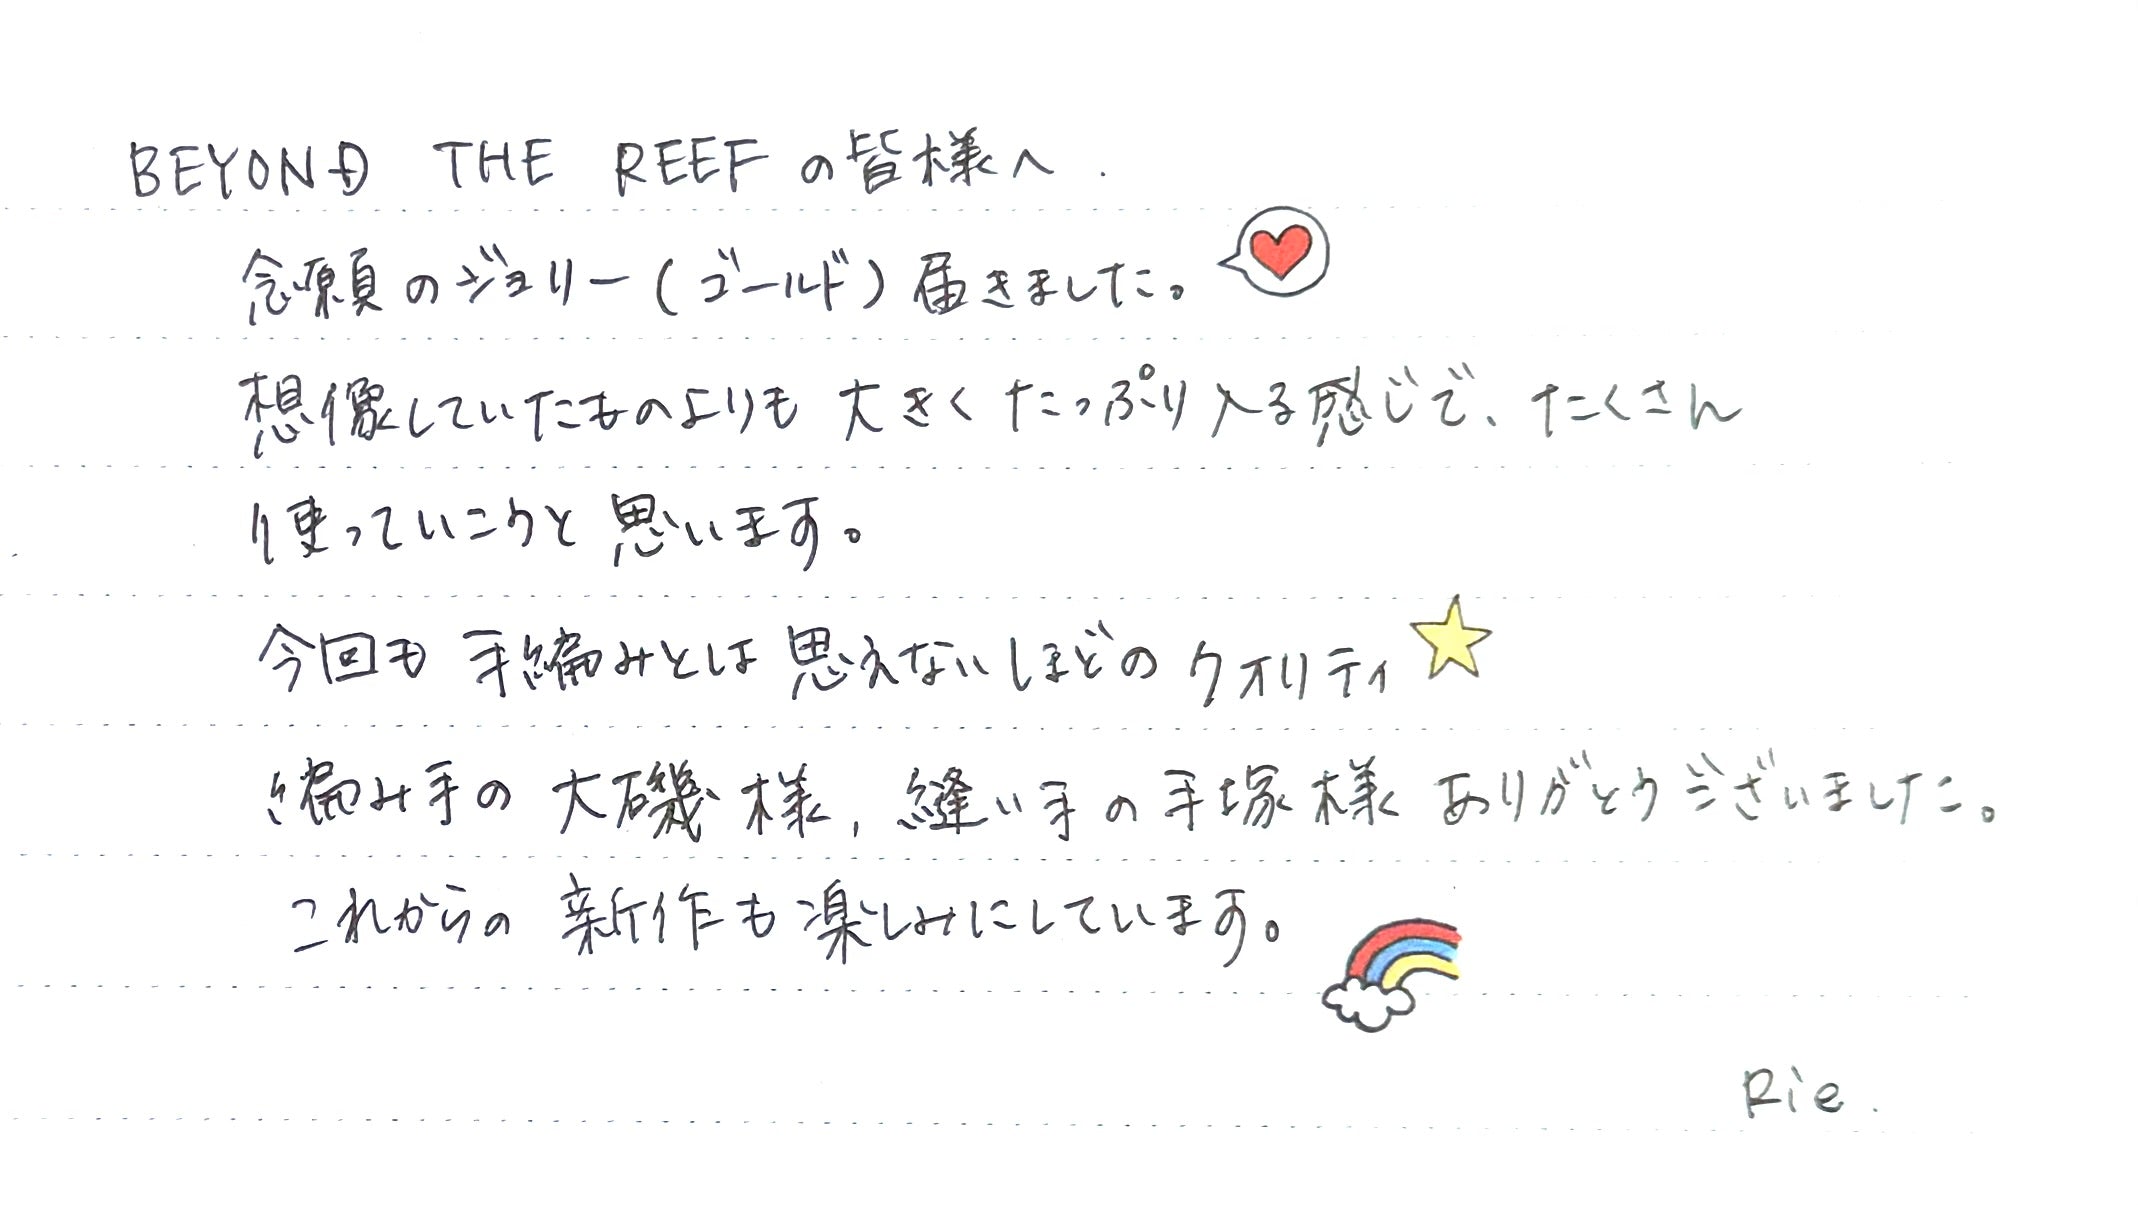 BEYOND THE REEFの皆様へ.
念願のジョリー(ゴールド)届きました。
想像していたものよりも大きくたっぷり入る感じで、たくさん
使っていこうと思います。
今回も手編みとは思えないほどのクオリティ
編み手の大磯様,縫い手の手塚様ありがとうございました。
これからの新作も楽しみにしています。
Rie.